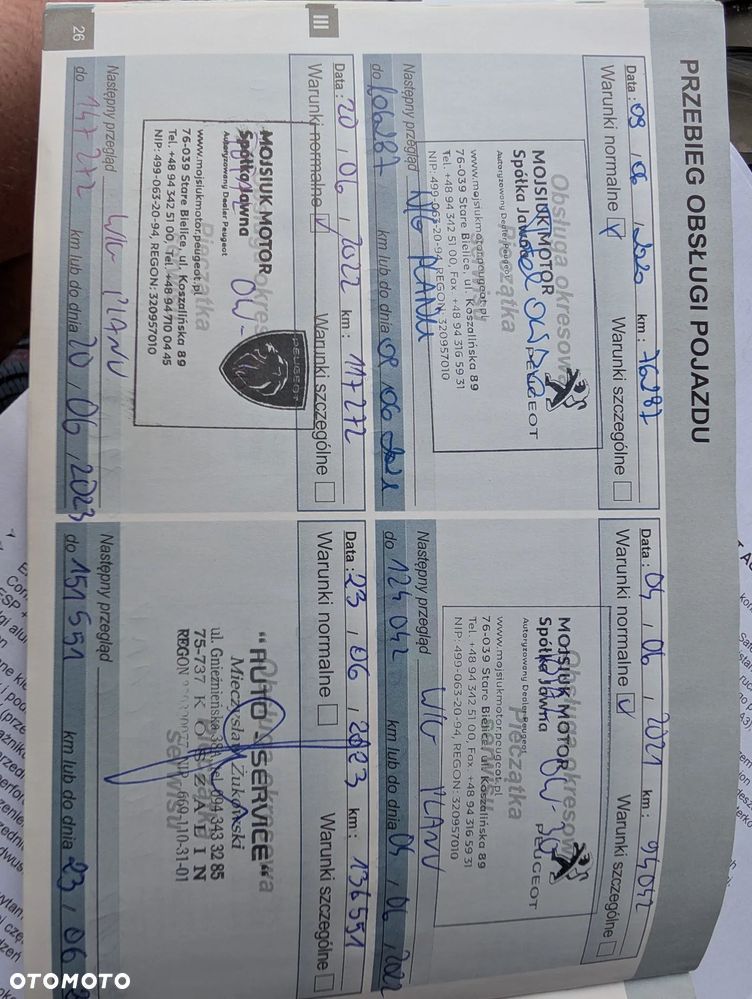 PRZEBIEG OBSŁUGI POJAZDU
Data : 09 / 06 / 2020 km : 76287
Warunki normalne Warunki szczególne
Obsługa okresowa
Pieczątka
MOJSIUK MOTOR
Spółka Jawna
Autoryzowany Dealer Peugeot
PEUGEOT
www.mojsiukmotor.peugeot.pl
76-039 Stare Bielice, ul. Koszalińska 89
Tel. +48 94 342 51 00, Fax +48 94 316 59 31
NIP: 499-063-20-94, REGON: 320957010
Następny przegląd W/G PLANU
do 106287 km lub do dnia 09 / 06 2021
Data : 04 / 06 / 2021 km : 94042
Warunki normalne Warunki szczególne
Obsługa okresowa
Pieczątka
serwisu
MOJSIUK MOTOR
Spółka Jawna
Autoryzowany Dealer Peugeot
PEUGEOT
www.mojsiukmotor.peugeot.pl
76-039 Stare Bielice, ul. Koszalińska 89
Tel. +48 94 342 51 00, Fax +48 94 316 59 31
NIP: 499-063-20-94, REGON: 320957010
Następny przegląd W/G PLANU
do 124 042 km lub do dnia 04 / 06 / 2022
Data : 20 / 06 / 2022 km : 117272
Warunki normalne Warunki szczególne
Pieczątka
MOJSIUK MOTOR
Spółka Jawna
Autoryzowany Dealer Peugeot
PEUGEOT
www.mojsiukmotor.peugeot.pl
76-039 Stare Bielice, ul. Koszalińska 89
Tel. +48 94 342 51 00, Tel. +48 94 710 04 45
NIP: 499-063-20-94, REGON: 320957010
Następny przegląd W/G PLANU
do 147272 km lub do dnia 20 / 06 / 2023
Data : 23 / 06 / 2023 km : 136551
Warunki normalne Warunki szczególne
Obsługa okresowa
serwisu
"AUTO-SERVICE"
Mieczysław Żukowski
ul. Gnieźnieńska 38, tel. 094 343 32 85
75-737 KOSZALIN
REGON NIP 669-110-31-01
Następny przegląd
do 151 551 km lub do dnia 23 / 06
26
III
OTOMOTO